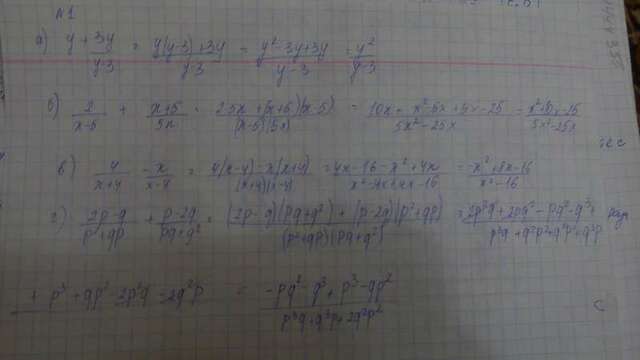 №1
а) y + 3y/(y-3) = (y(y-3)+3y)/(y-3) = (y²-3y+3y)/(y-3) = y²/(y-3)
б) 2/(x-5) + (x+5)/5x = (2·5x+(x+5)(x-5))/((x-5)(5x)) = (10x+x²-5x+5x-25)/(5x²-25x) = (x²+10x-25)/(5x²-25x)
в) 4/(x+4) - x/(x-4) = (4(x-4)-x(x+4))/((x+4)(x-4)) = (4x-16-x²+4x)/(x²-4x+4x-16) = (-x²+8x-16)/(x²-16)
г) (2p-q)/(p²+qp) + (p-2q)/(pq+q²) = ((2p-q)(pq+q²)+(p-2q)(p²+qp))/((p²+qp)(pq+q²)) = (2p²q+2pq²-pq²-q³+)/(p³q+q²p²+q²p²+q³p)
+p³+qp²-2p²q-2q²p = (-pq²-q³+p³-qp²)/(p³q+q³p+2q²p²)